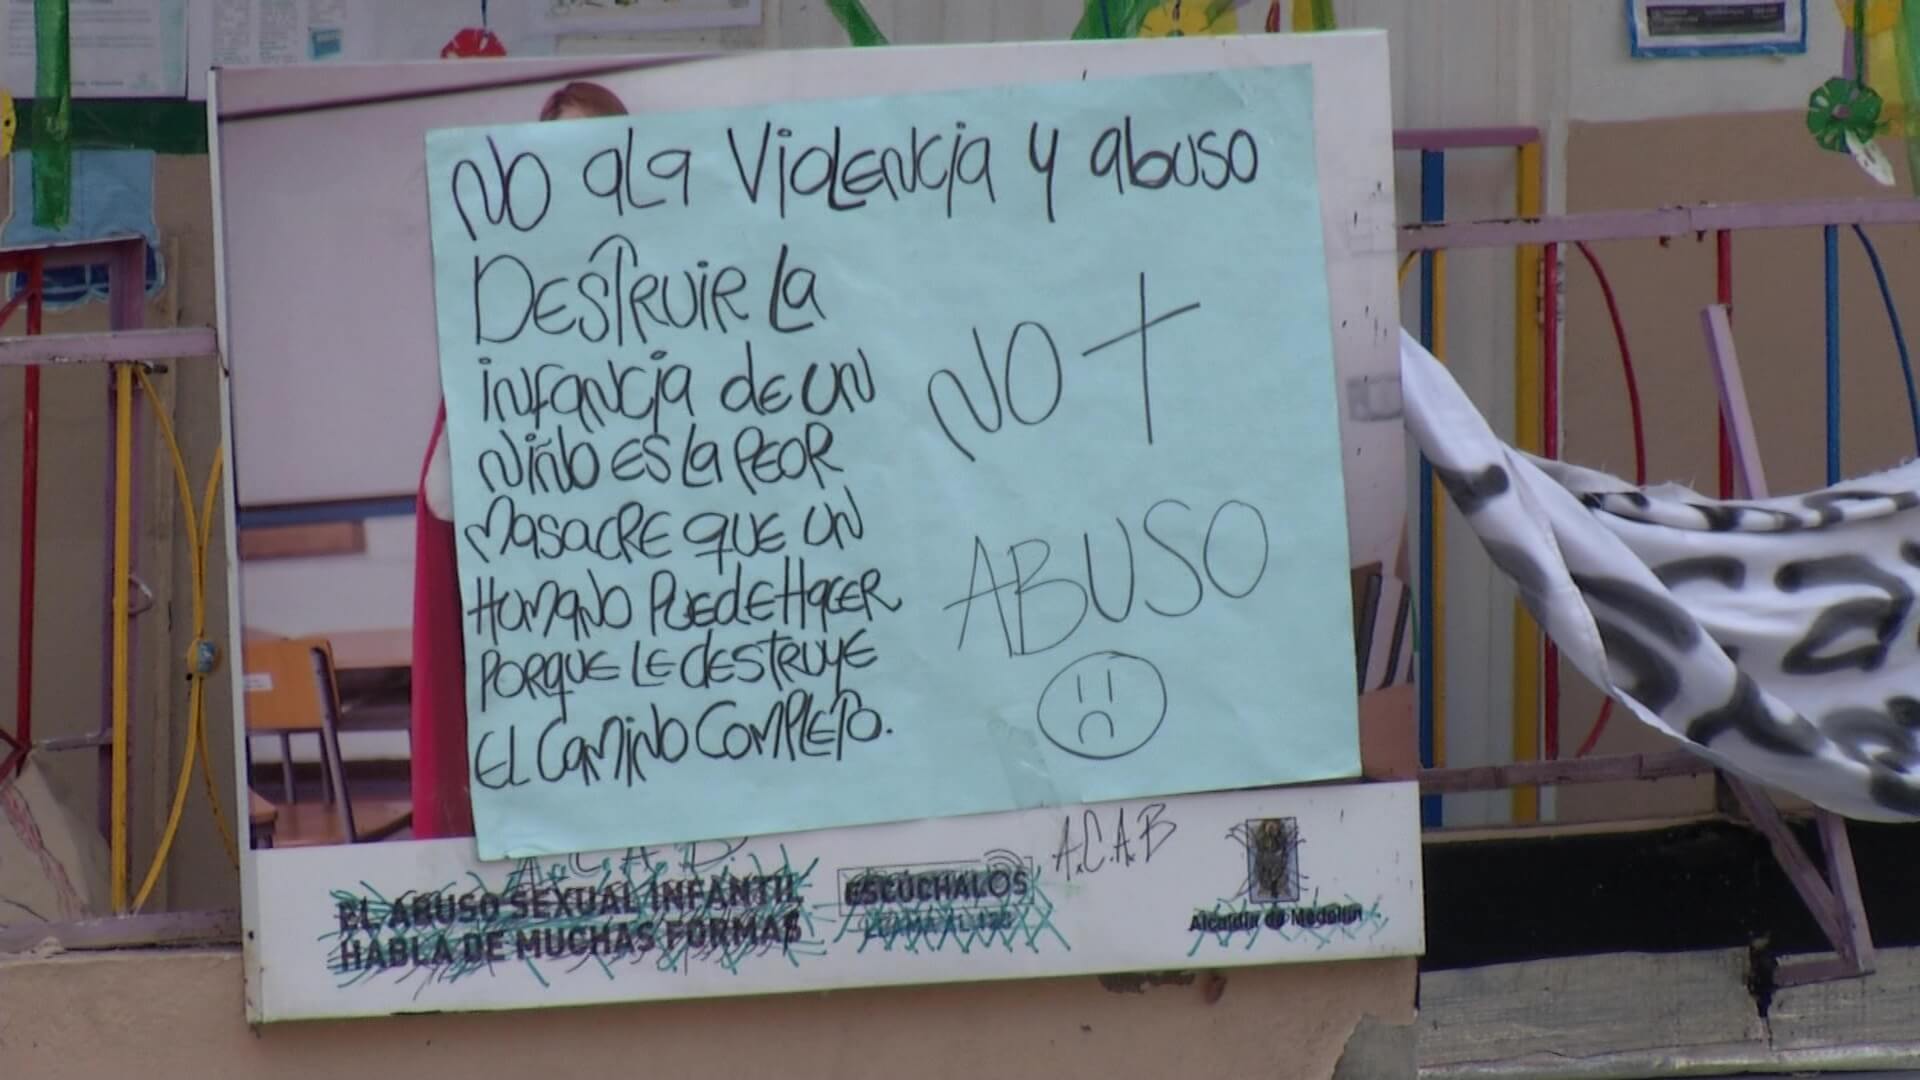 NO ala Violencia y abuso
DESTRUIR la
infancia de un
niño es la peor
masacre que un
humano puede Hacer
porque le destruye
el camino completo.
NO +
ABUSO
A.C.A.B
A.C.A.B
EL ABUSO SEXUAL INFANTIL
HABLA DE MUCHAS FORMAS
ESCÚCHALOS
LLAMA AL 123
Alcaldía de Medellín